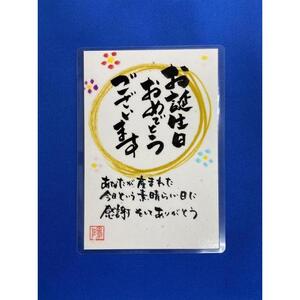 お誕生日
おめでとう
ございます
あなたが産まれた
今日という素晴らしい日に
感謝そしてありがとう